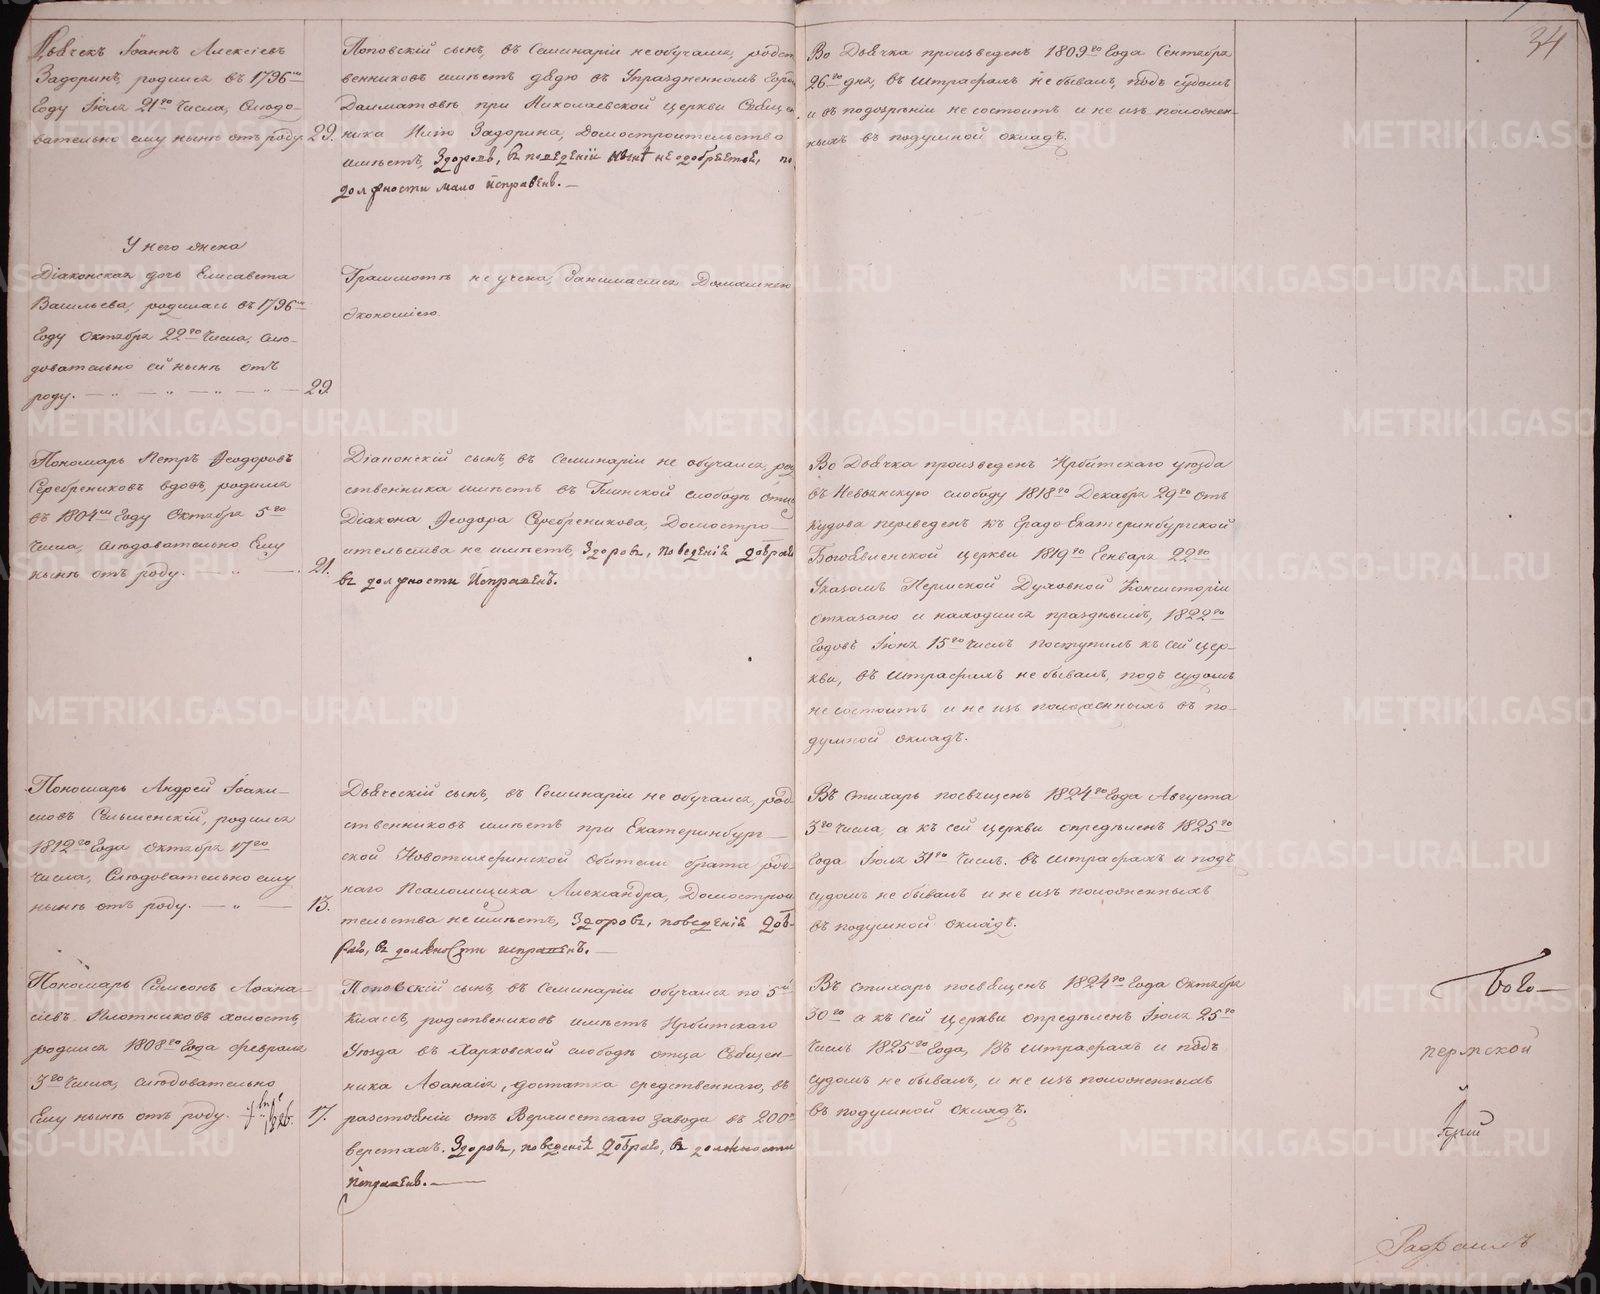 34
Дьячекъ Іоаннъ Алексіевъ
Задоринъ, родился въ 1796мъ
Году Іюля 21го Числа, Слѣдо-
вательно ему нынѣ отъ роду. 29.
Поповскій сынъ, въ Семинаріи необучался, родст
венниковъ имѣетъ дядю въ Упраздненномъ Горо
Далматовѣ при Николаевской церкви Священ
ника Илію Задорина, Домостроительство
имѣетъ, Здоровъ, въ поведеніи не одобряется,
должности мало исправенъ.—
Во Дьячка произведенъ 1809го Года Сентября
26го дня, въ штрафахъ не бывалъ, подъ судомъ
и въ подозрѣніи не состоитъ и не изъ положен-
ныхъ въ подушной окладъ.
У него жена
Діаконская дочь Елисавета
Васильева, родилась въ 1796мъ
Году Октября 22го Числа, Слѣ-
довательно ей нынѣ отъ
роду. 29.
Грамотѣ не учена, Занимается Домашнею
Экономіею.
Пономарь Петръ Ѳеодоровъ
Серебрениковъ вдовъ, родился
въ 1804мъ Году Октября 5го
Числа, слѣдовательно Ему
нынѣ отъ роду. 21.
Діаконскій сынъ, въ Семинаріи не обучался, род
ственника имѣетъ въ Глинской слободѣ отца
Діакона Ѳеодора Серебреникова, Домостро-
ительства не имѣетъ, Здоровъ, поведенія добраго
въ должности Исправенъ.
Во Дьячка произведенъ Ирбитскаго уѣзда
въ Невьянскую слободу 1818го Декабря 29го отъ
кудова переведенъ къ Градо-Екатеринбургской
Богоявленской церкви 1819го Генваря 22го
Указомъ Пермской Духовной Консисторіи
отказано и находился празднымъ, 1822го
Годовъ Іюня 15го Числъ поступилъ къ сей цер-
кви, въ штрафахъ не бывалъ, подъ судомъ
не состоитъ и не изъ положенныхъ въ по-
душной окладъ.
Пономарь Андрей Іоаки-
мовъ родился
1812го Года октября 17го
Числа, Слѣдовательно ему
нынѣ отъ роду. 13.
Дьяческій сынъ, въ Семинаріи не обучался, род-
ственниковъ имѣетъ при Екатеринбург-
ской Новотихвинской Обители брата род-
наго Псаломщика Александра, Домострои
тельства не имѣетъ, Здоровъ, поведенія доб-
раго, въ должности исправенъ.—
Въ Стихарь посвященъ 1824го Года Августа
3го Числа, а къ сей церкви опредѣленъ 1825го
Года Іюля 31го Числъ. въ штрафахъ и подъ
судомъ не бывалъ и не изъ положенныхъ
въ подушной окладъ.
Пономарь Симеонъ Аѳана-
сіевъ Плотниковъ холостъ,
родился 1808го Года февраля
3го Числа, слѣдовательно
Ему нынѣ отъ роду. 17.
1826.
Поповскій сынъ, въ Семинаріи обучался по 5й
Классъ, родственниковъ имѣетъ Ирбитскаго
Уѣзда въ Харковской слободѣ отца Священ-
ника Аѳанасія, достатка средственнаго, въ
разстояніи отъ Верхисетскаго завода въ 200
верстахъ. Здоровъ, поведенія добраго, въ должности
исправенъ.—
Въ стихарь посвященъ 1824го Года Октября
30го а къ сей церкви опредѣленъ Іюля 25го
Числъ 1825го Года, Въ штрафахъ и подъ
судомъ не бывалъ, и не изъ положенныхъ
въ подушной окладъ.
пермской
METRIKI.GASO-URAL.RU